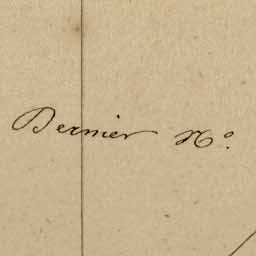 Dernier N°.